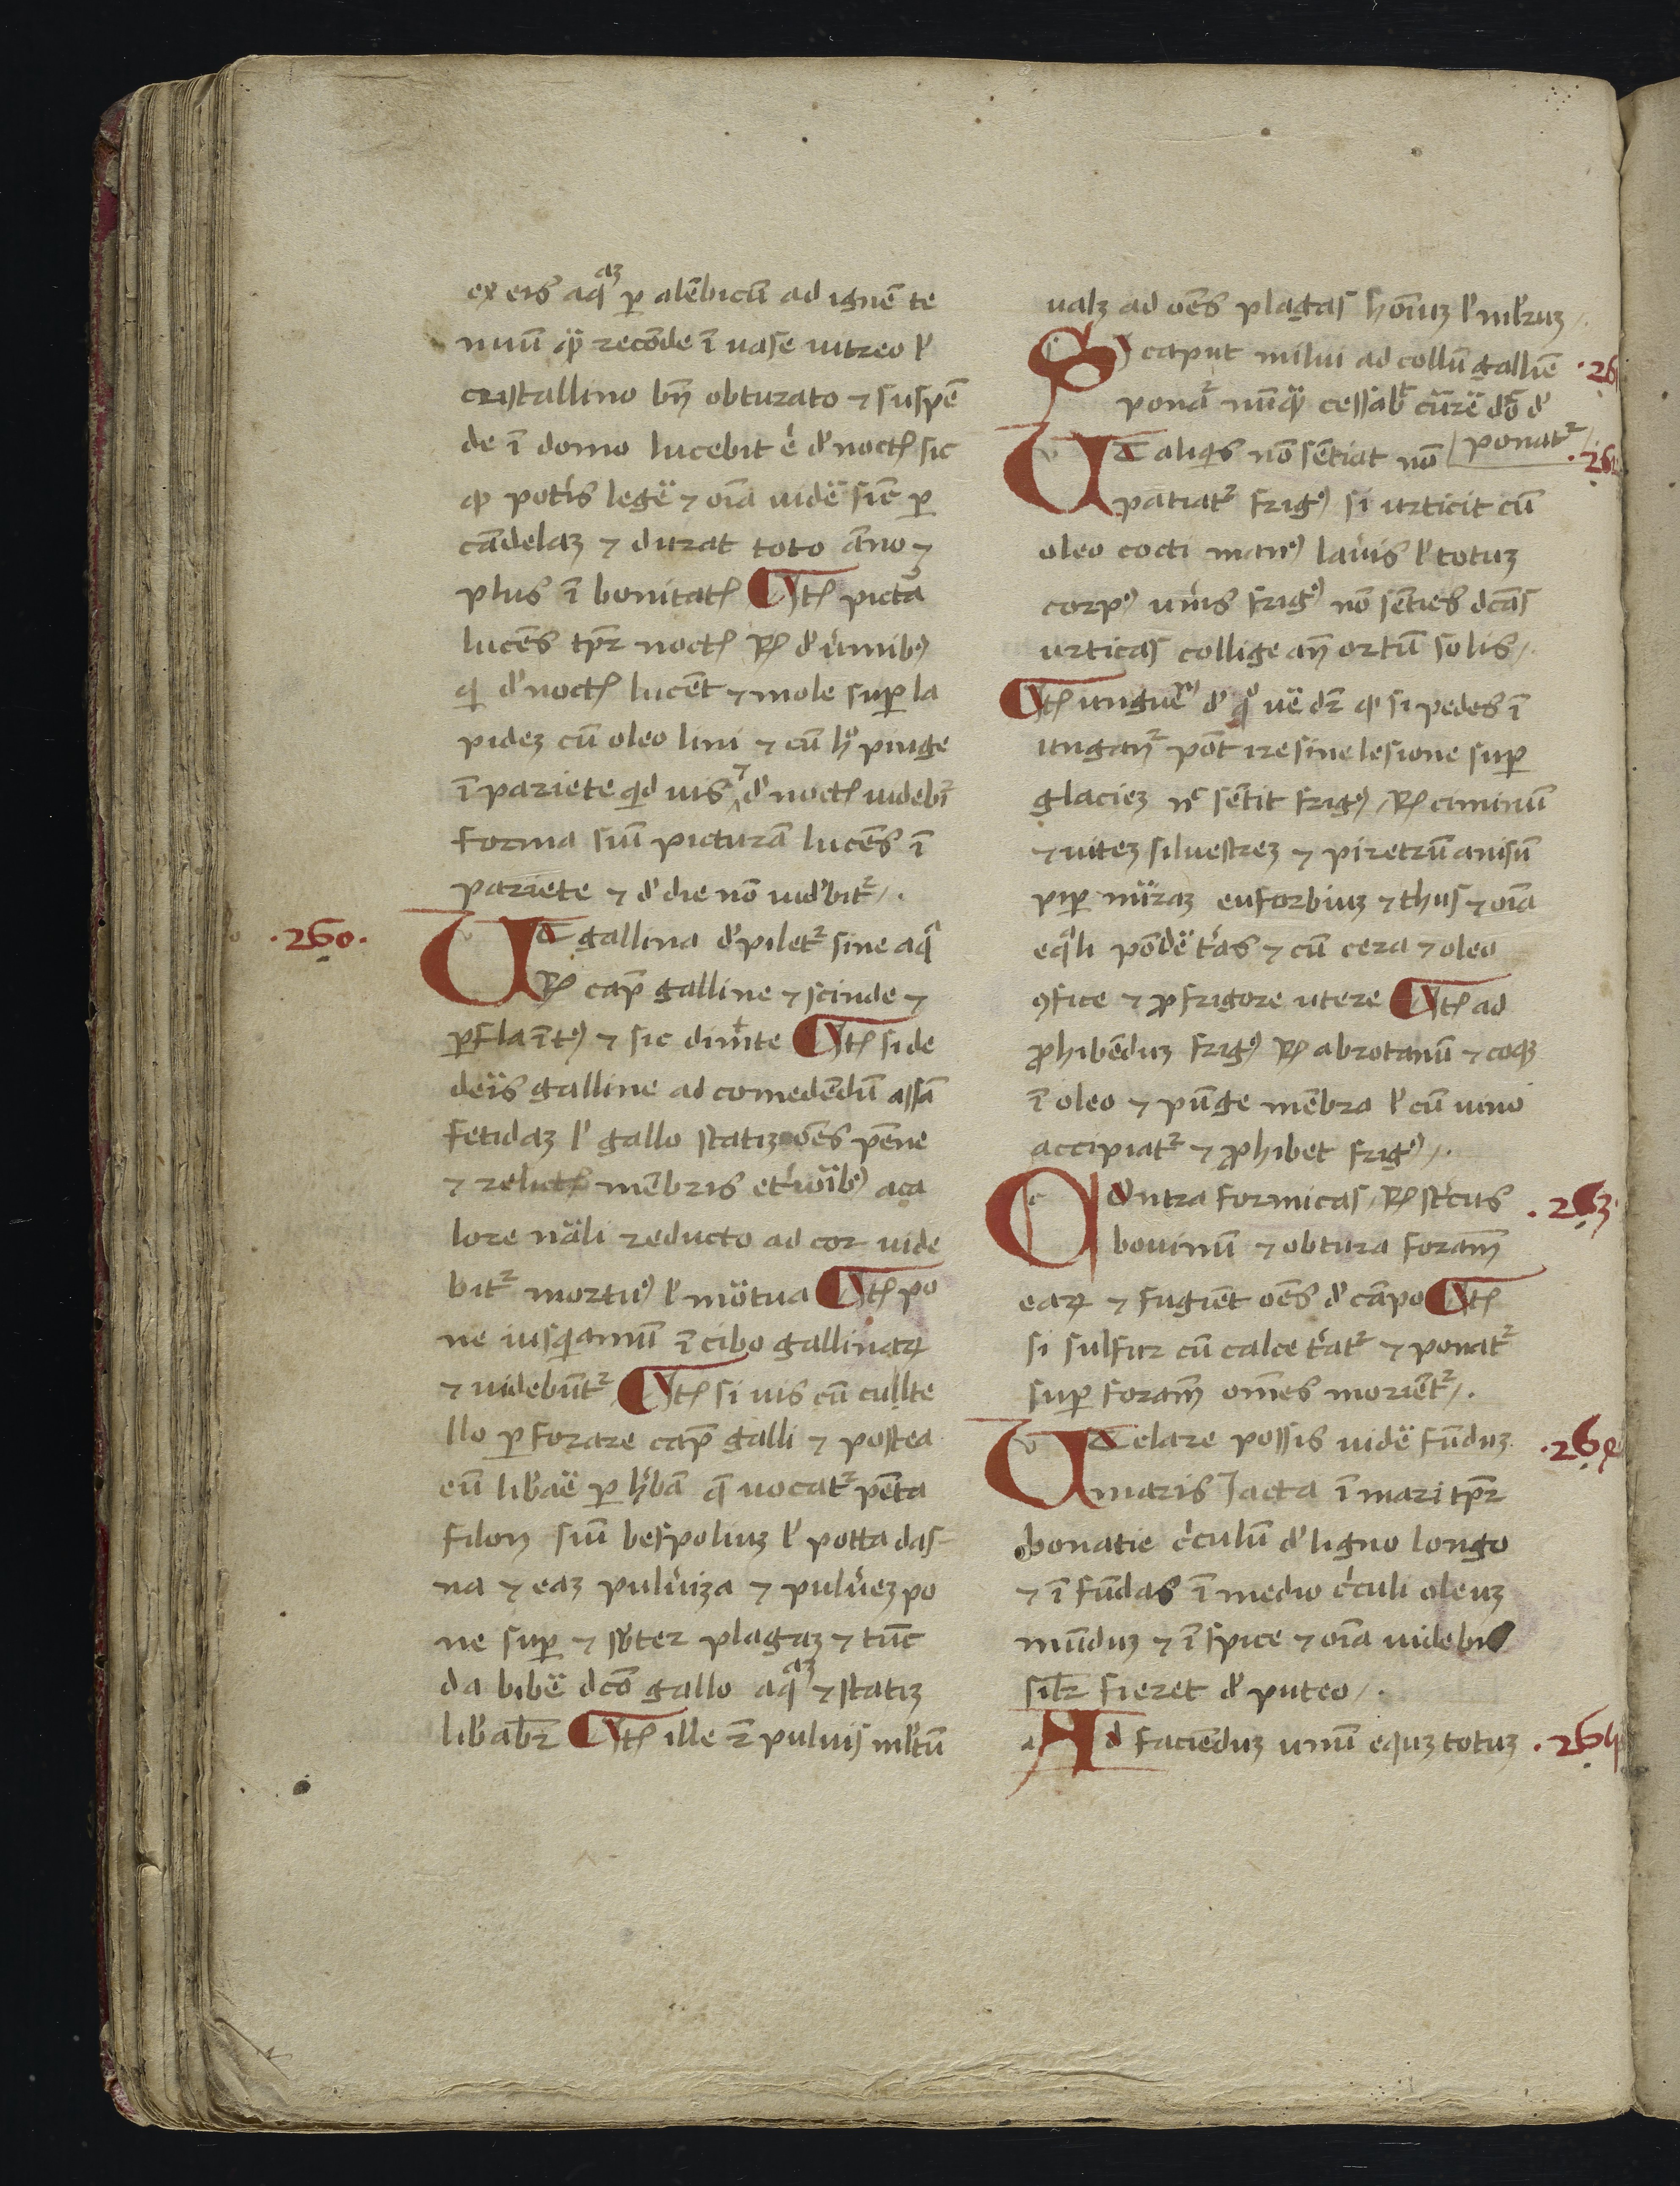 ex eis aq̃aʒ ꝑ alẽbicũ ad ignẽ te
nuũ qͣ recõde ĩ uase uitreo l'
cristallino bñ obturato ⁊ suspẽ
de ĩ domo lucebit d' noctꝭ sic
ꝙ potis legẽ ⁊ oĩa uidẽ sic̃ ꝑ
cãdelaʒ ⁊ durat toto ãno ⁊
plus ĩ bonitatꝭ Itꝭ pictã
lucẽs tpꝛ noctꝭ Rꝭ d' ũmibꝰ
qi d' noctꝭ lucẽt ⁊ mole suꝑ la
pideʒ cũ oleo lini ⁊ cũ hͦ pinge
ĩ pariete qid uis ⁊ d' noctꝭ uidebr̃
forma siũ picturã lucẽs ĩ
pariete ⁊ d' die nõ uid'bit᷑
·260·
Ut gallina d'pilet᷑ sine aqͣ
Rꝭ cap̃ galline ⁊ scinde ⁊
ꝑfla ĩtꝰ ⁊ sic dimĩte Itꝭ si de
deris galline ad comedẽdũ assã
fetidaʒ l' gallo statiʒ oẽs pẽne
⁊ relictꝭ mẽbris aca
lore nãli reducto ad cor uide
bit᷑ mortuꝰ l' mõtua Itꝭ po
ne iusqiamũ ĩ cibo gallinaꝝ
⁊ uidebũt᷑ Itꝭ si uis cũ cullte
llo ꝑforare cap̃ galli ⁊ postea
eũ lib'aẽ ꝑ h'bã q̃ uocat᷑ pẽta
filon siũ bespoliuʒ l' potta das
na ⁊ eaʒ pulũiʒa ⁊ pulũeʒ po
ne suꝑ ⁊ sbter plagaʒ ⁊ tũc
da bibẽ dc̃o gallo aq̃aʒ ⁊ statiʒ
lib'abr̃ Itꝭ ille puluis ml'tũ
ualʒ ad oẽs plagas hoĩuʒ l' ml'ruʒ
·26
Si caput milui ad collũ galliẽ
ponat᷑ nũqͣ cessab̃ cũrẽ dõ d'
ponat᷑
·26
Ut aliqis nõ sẽtiat nõ
patiat᷑ frigꝰ si urticis cũ
oleo cocti manꝰ lauĩs l' totuʒ
corpꝰ ũis frigꝰ nõ sẽties dc̃as
urticas collige añ ortũ solis
Itꝭ unguẽm d' qͦ uẽ dr̃ ꝙ si pedes ĩ
ungañ᷑ põt ire sine lesione suꝑ
glacieʒ nc̃ sẽtit frigꝰ Rꝭ ciminũ
⁊ uiteʒ siluestreʒ ⁊ piretrũ anisũ
piꝑ nigraʒ euforbiuʒ ⁊ thus ⁊ oĩa
eqͣli põdẽ tãs ⁊ cũ cera ⁊ oleo
ꝯfice ⁊ ꝓ frigore utere Itꝭ ad
ꝓhibẽduʒ frigꝰ Rꝭ abrotanũ ⁊ coqʒ
ĩ oleo ⁊ pũge mẽbra l' cũ uino
accipiat᷑ ⁊ ꝓhibet frigꝰ
Cõntra formicas Rꝭ st'cus
·263·
bouinũ ⁊ obtura foram̃
eaꝝ ⁊ fugiẽt oẽs d' cãpo Itꝭ
si sulfur cũ calce t'at᷑ ⁊ ponat᷑
suꝑ foram̃ om̃es moriẽt᷑
Ut clare possis uidẽ fũduʒ
·264
maris Jacta ĩ mari tpꝛ
bonatie c'culũ d' ligno longo
⁊ ĩ fũdas ĩ medio c'culi oleuʒ
mũduʒ ⁊ ĩspice ⁊ oĩa uidebis
sil'r fieret d' puteo
Ad faciẽduʒ unũ equʒ totuʒ
·26